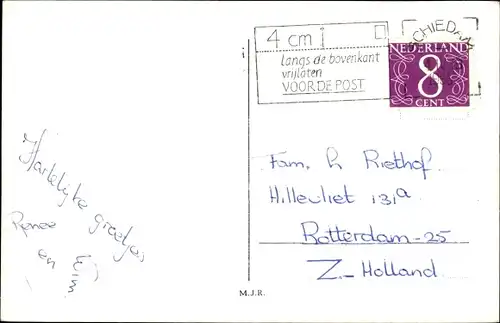 4 cm
langs de bovenkant
vrijlaten
VOOR DE POST
SCHIEDAM
NEDERLAND
8
CENT
Hartelijke groetjes
Renee
en
Fam. h Riethof
Hillevliet 131a
Rotterdam-25
Z.-Holland
M.J.R.